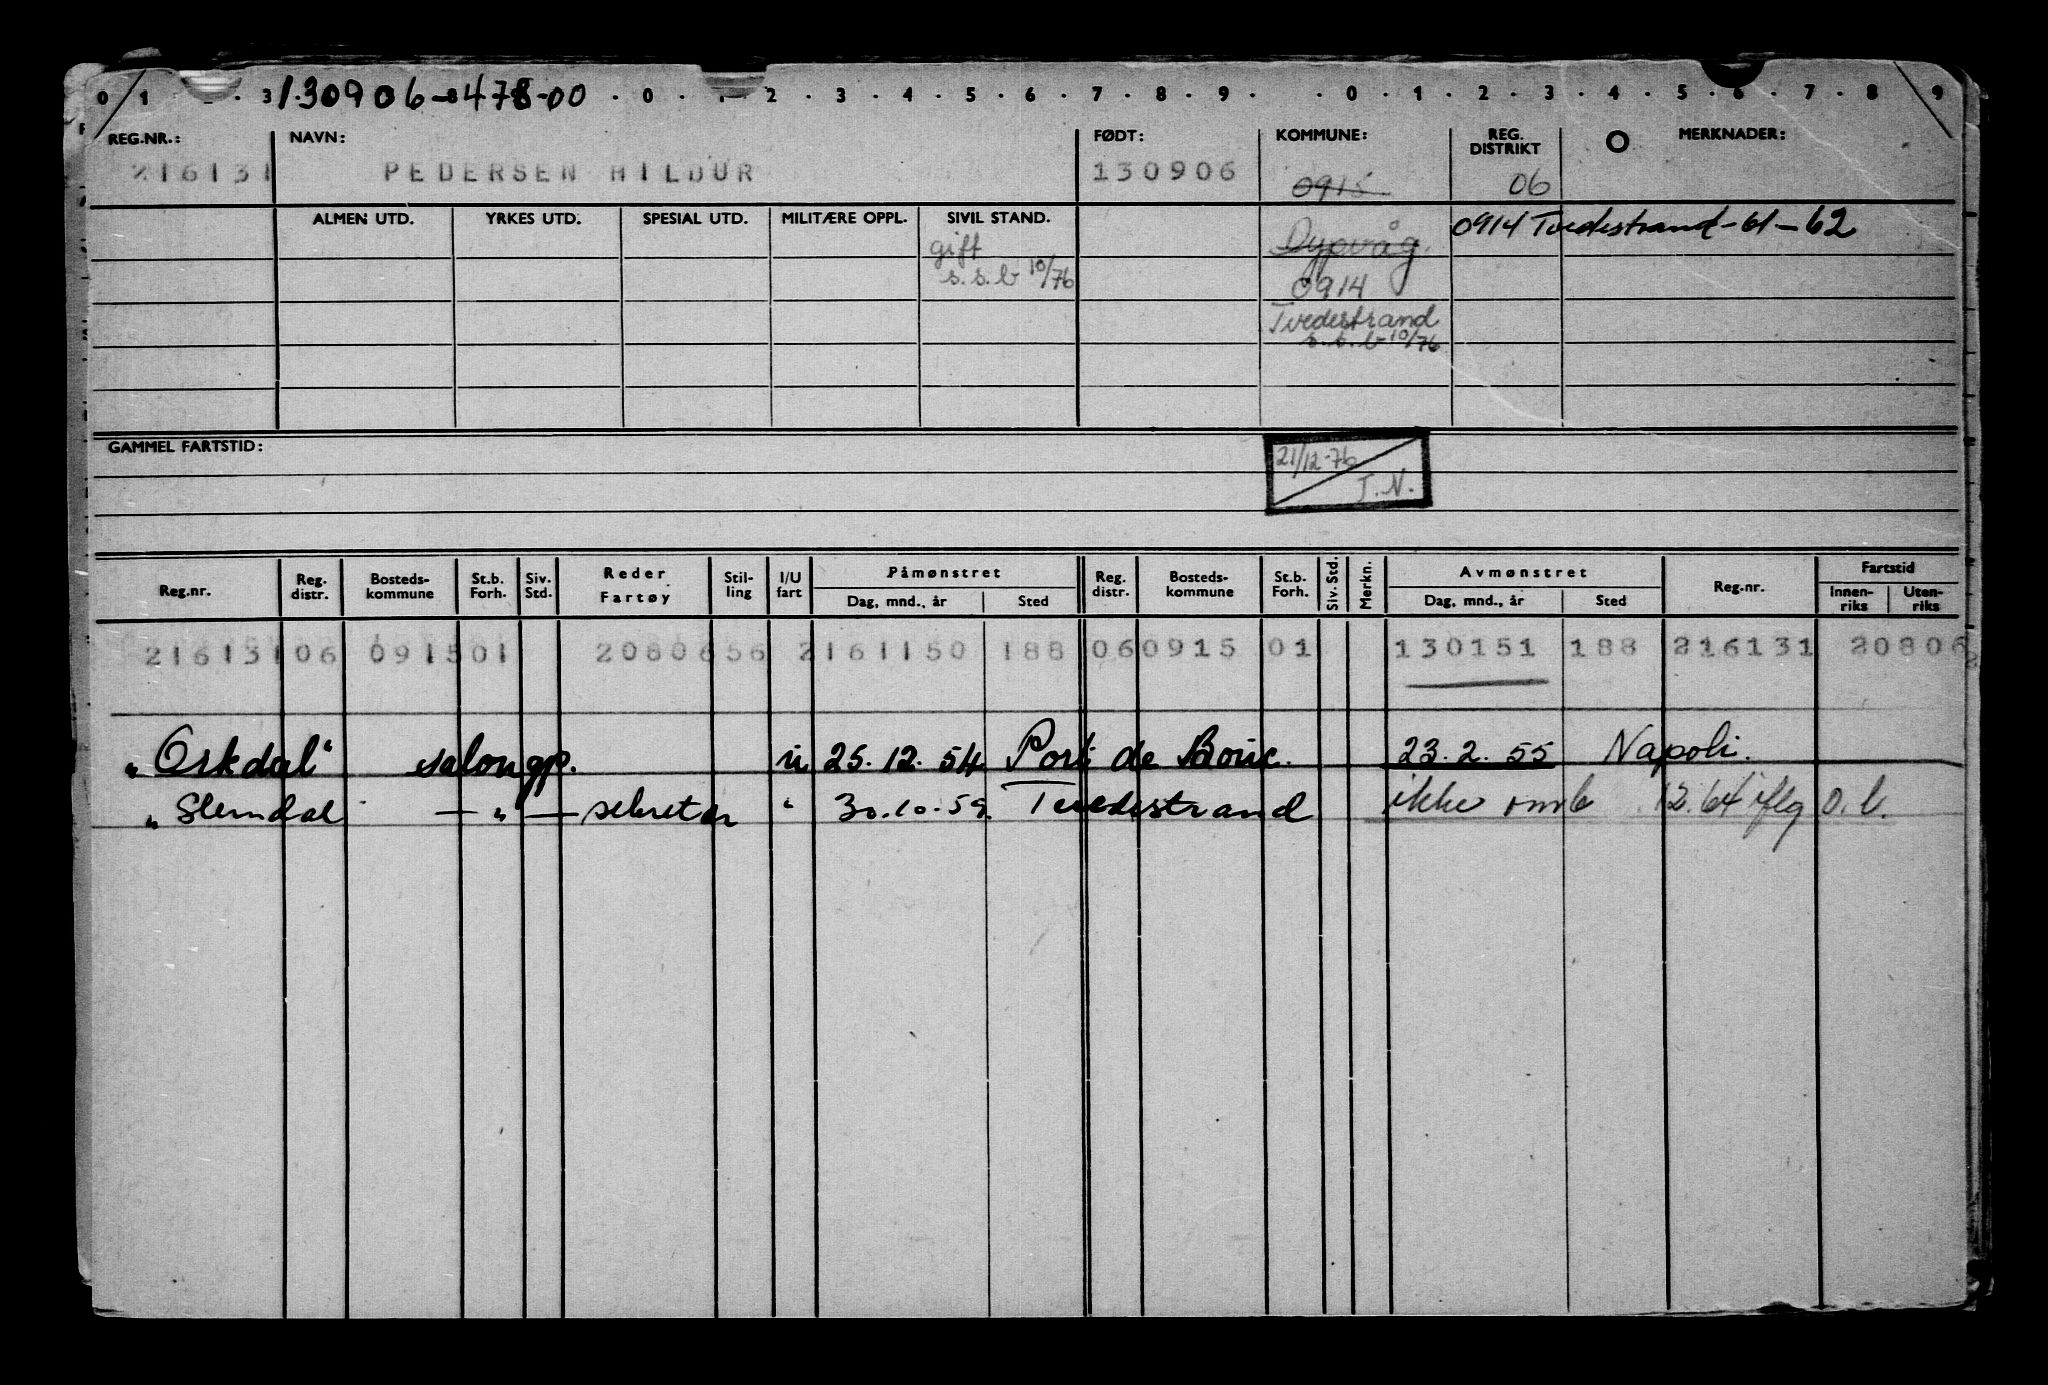 0 1 3 130906-478-00 0 1 2 3 4 5 6 7 8 9 0 1 2 3 4 5 6 7 8 9
REG.NR.: NAVN: FØDT: KOMMUNE: REG. DISTRIKT MERKNADER:
216131 PEDERSEN HILDUR 130906 0915 06
ALMEN UTD. YRKES UTD. SPESIAL UTD. MILITÆRE OPPL. SIVIL STAND.
0914 Tvedestrand-61-62
gift Dypvåg.
s.s.b 10/76 0914
Tvedestrand
s.s.b 10/76
GAMMEL FARTSTID:
21/12-76
I.N.
Reg.nr. Reg. distr. Bosteds-kommune St.b. Forh. Siv. Std. Reder Fartøy Stil-ling I/U fart Påmønstret Dag, mnd., år Sted Reg. distr. Bosteds-kommune St.b. Forh. Siv. Std. Merkn. Avmønstret Dag, mnd., år Sted Reg.nr. Fartstid Innen-riks Uten-riks
216131 06 0915 01 20806 56 2 161150 188 06 0915 01 130151 188 216131 20806
"Orkdal" salongp. u 25.12.54 Port de Bouc. 23.2.55 Napoli.
" Slemdal — " — sekretær " 30.10.59. Tvedestrand ikke omb 12.64 iflg o.b.